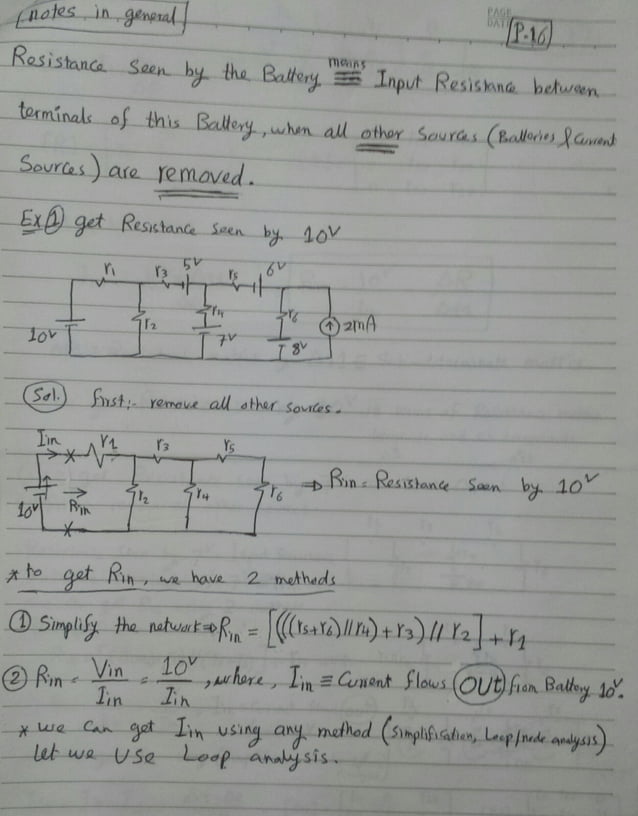 notes in general
PAGE
DATE
P.16
Resistance Seen by the Battery means ≡ Input Resistance between
terminals of this Battery, when all other Sources (Batteries & Current
Sources) are removed.
Ex① get Resistance seen by 10V
r1 r3 5V r5 6V
10V r2 r4 7V r6 8V 2mA
Sol. first:- remove all other sources.
Iin r1 r3 r5
10V Rin r2 r4 r6 ⇒ Rin = Resistance seen by 10V
* to get Rin, we have 2 methods
① Simplify the network ⇒ Rin = [(((r5+r6)//r4)+r3)// r2] + r1
② Rin = Vin/Iin = 10V/Iin, where, Iin ≡ Current flows OUT from Battery 10V.
* we can get Iin using any method (simplification, Loop/node analysis)
let we USe Loop analysis.